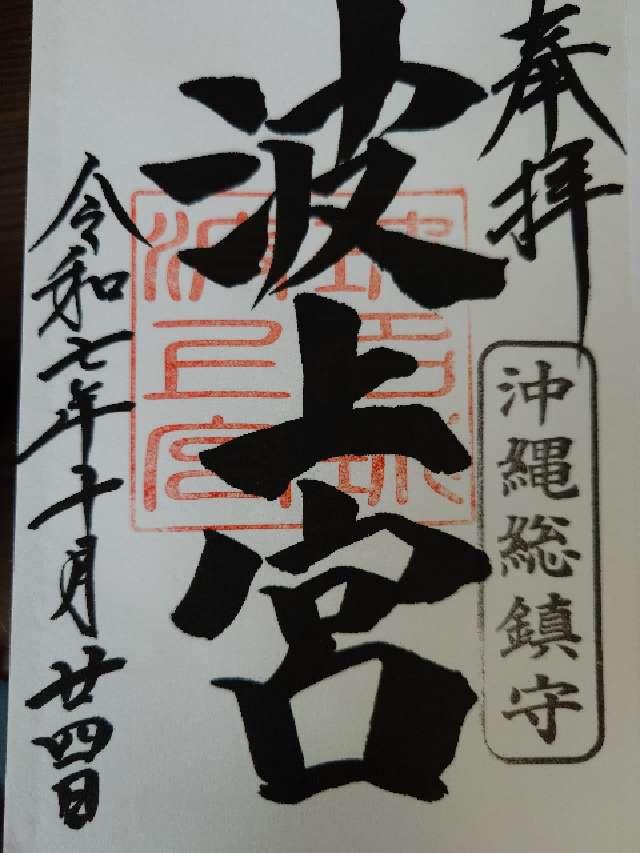 奉拝
沖縄総鎮守
波上宮
令和七年十月廿四日